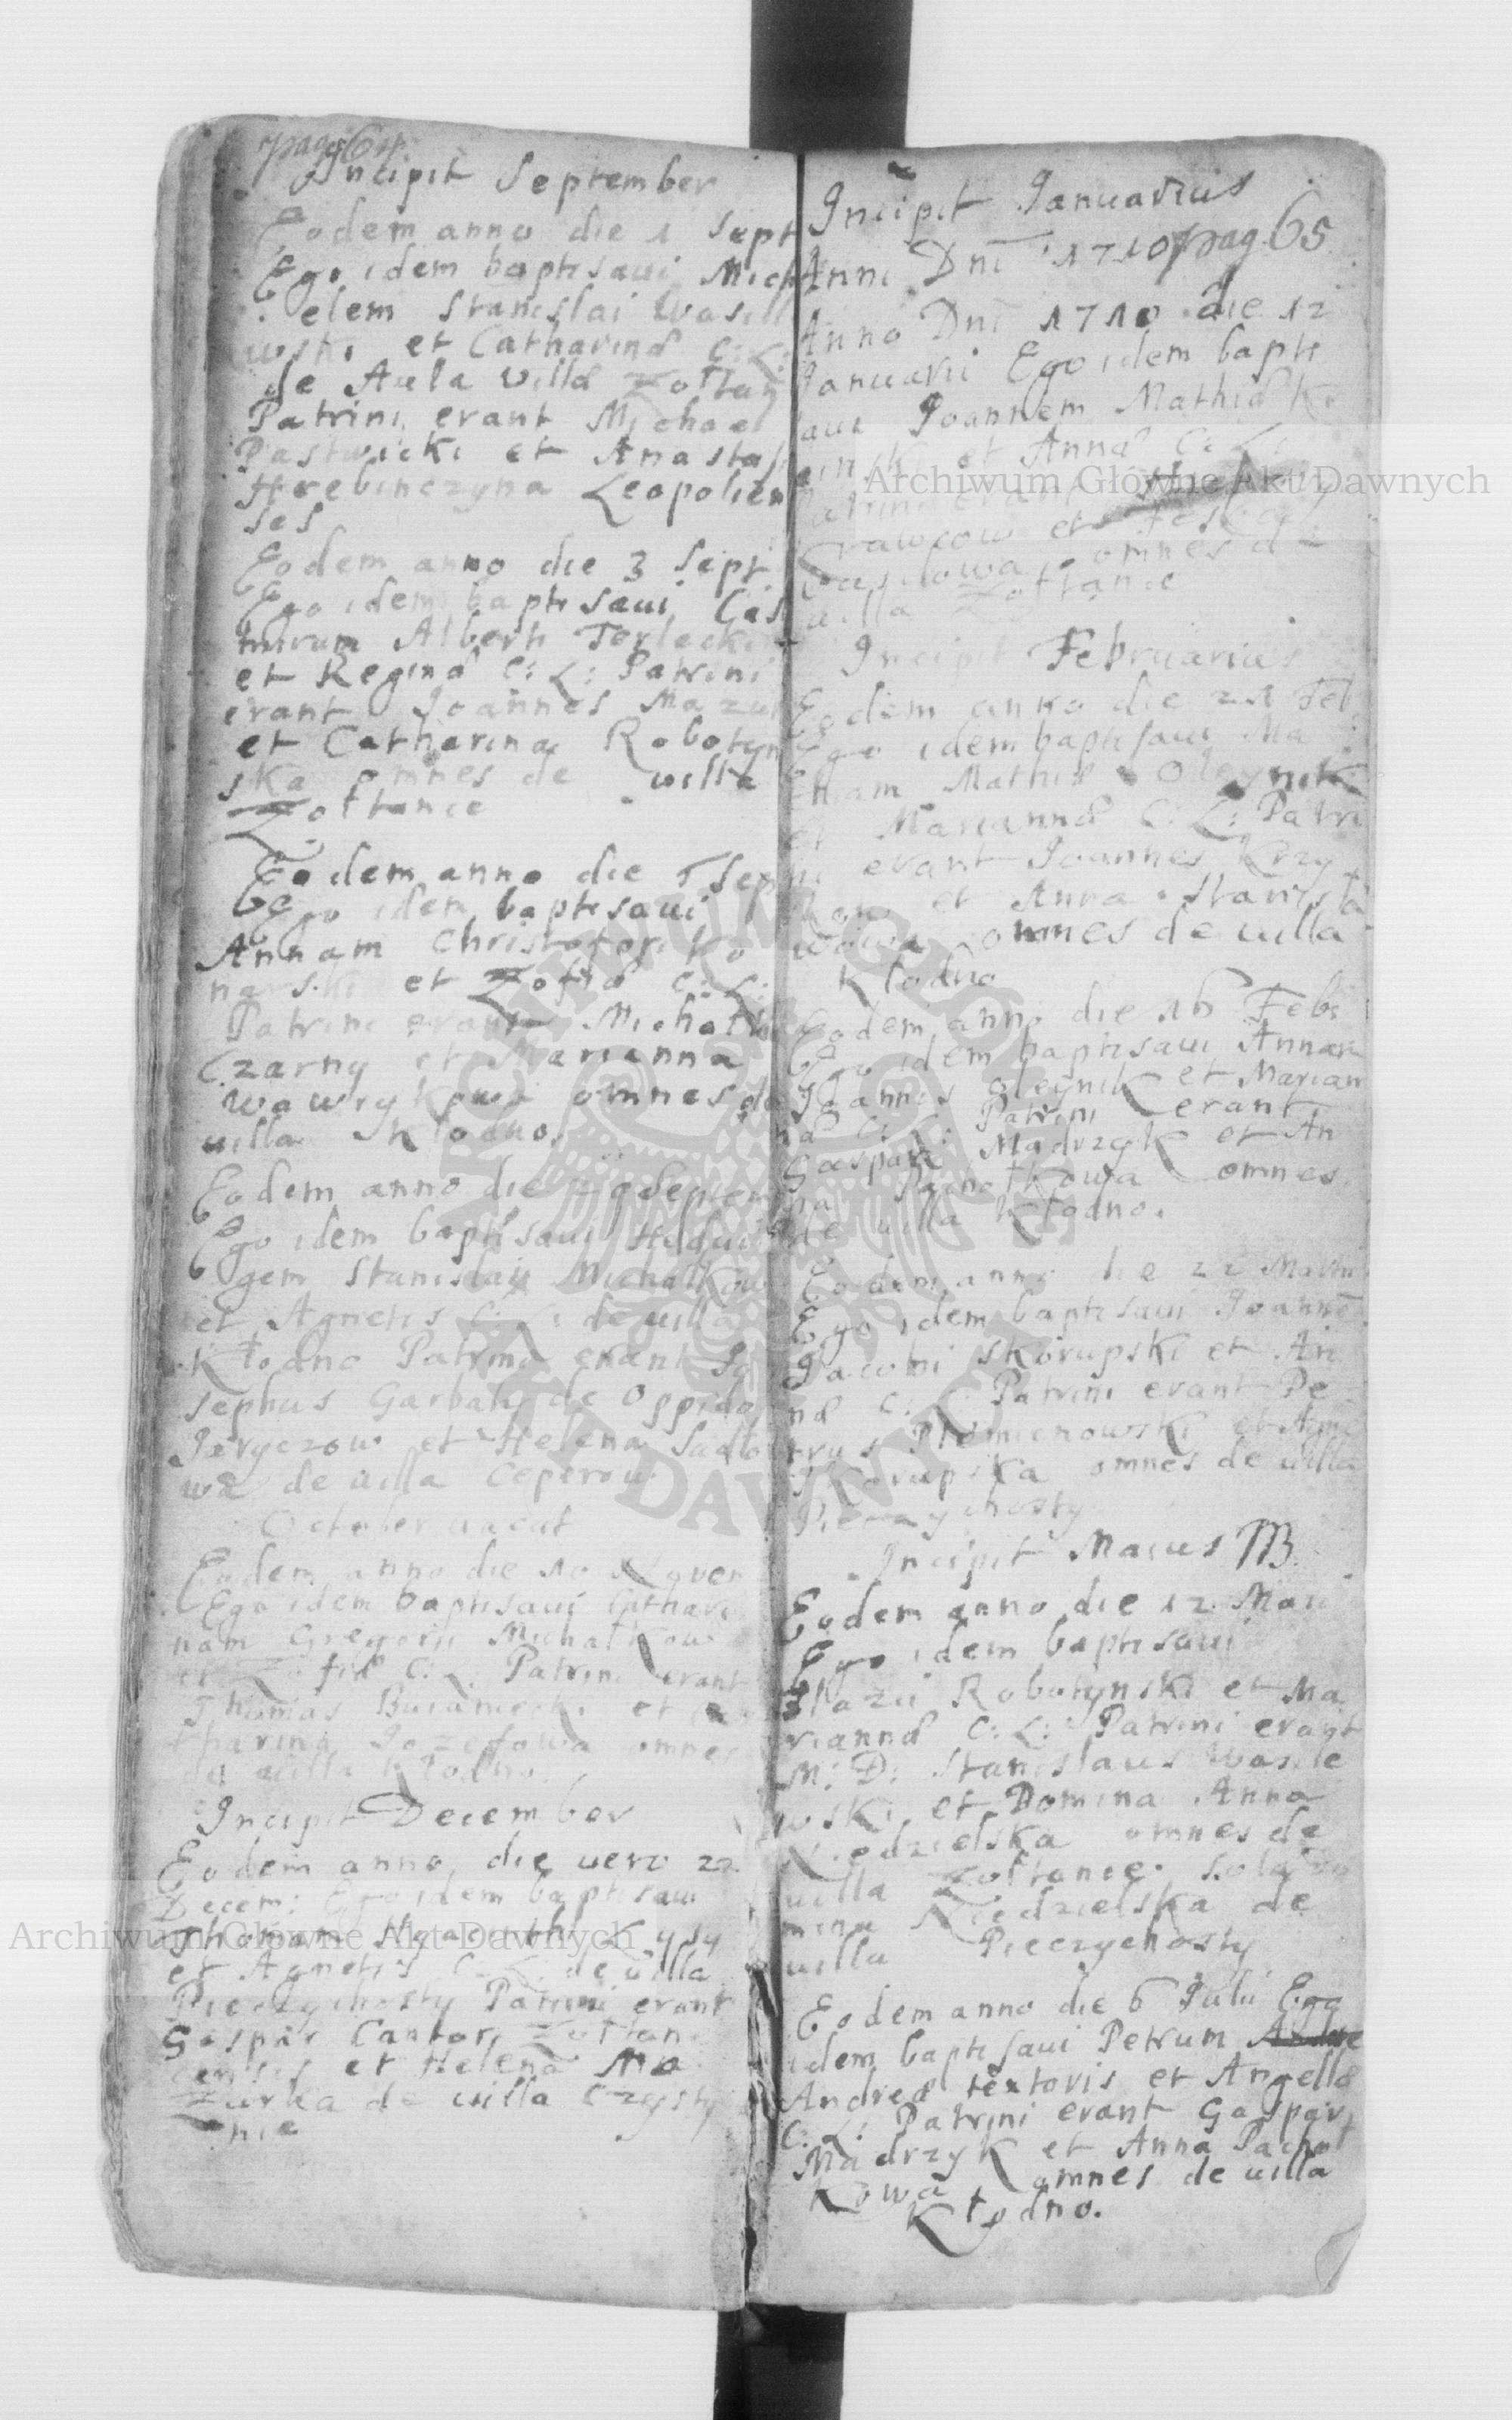 pag 64
Incipit September
Eodem anno die 1 Sept
Ego idem baptisaui Mich
elem Stanislai Wasil
wski et Catharinæ C: L:
de Aula Villæ Zołtan
Patrini erant Michael
Pastwicki et Anastas
Hrebinczyna Leopolien
ses
Eodem anno die 3 Sept
Ego idem baptisaui Casi
mirum Alberti Terlecki
et Reginæ C: L: Patrini
erant Joannes Mazur
et Catharina Robotyn
ska omnes de villa
Zołtance
Eodem anno die Sep
Ego idem baptisaui
Annam Christofori Ko
narski et Zofiæ C: L:
Patrini erant Michał
Czarny et Marianna
Wawrykowa omnes de
uilla Kłodno
Eodem anno die 29 Septem
Ego idem baptisaui Hedui
gem Stanislai Michałkow
et Agnetis C: L: de uilla
Kłodno Patrini erant Jo
sephus Garbaty de Oppido
Jaryczow et Helena Sadło
wa de uilla Ceperow
October uacat
Eodem anno die 10 Novem
Ego idem baptisaui Cathari
nam Gregorii Michałkow
et Zofiæ C: L: Patrini erant
Thomas et Ca
tharina Jozefowa omnes
de uilla Kłodno
Incipit December
Eodem anno die uero 22
Decem: Ego idem baptisaui
Thomam Hyacinthi Kysy
et Agnetis C: L: de uilla
Pieczychosty Patrini erant
Gaspar Cantor Zołtan
censis et Helena Ma
zurka de uilla Czysty
nie
Incipit Januarius
Anni Dni 1710 pag. 65
Anno Dni 1710 die 12
Januarii Ego idem bapti
saui Joannem Mathiæ Ko
inski et Annæ C: L:
Patrini erant
Krawcow et
Wasilowa omnes de
uilla Zołtance
Incipit Februarius
Eodem anno die 21 Feb:
Ego idem baptisaui Ma
thiam Mathiæ Oleynik
et Mariannæ C: L: Patri
ni erant Joannes Krzy
kow et Anna Stanisła
wowa omnes de uilla
Kłodno
Eodem anno die 26 Feb:
Ego idem baptisaui Annam
Joannis Oleynik et Marian
næ C: L: Patrini erant
Gaspar Mądrzyk et An
na Pachołkowa omnes
de uilla Kłodno.
Eodem anno die 22 Martii
Ego idem baptisaui Joannē
Jacobi Skorupski et An
næ C: L: Patrini erant Pe
trus Płomienowski et Agne
Skorupska omnes de uilla
Pieczychosty
Incipit Maius
Eodem anno die 12 Maii
Ego idem baptisaui
Blazii Robotynski et Ma
riannæ C: L: Patrini erant
M: D: Stanislaus Wasile
wski et Domina Anna
Niedzielska omnes de
uilla Zołtance. Sola Do
mina Niedzielska de
uilla Pieczychosty
Eodem anno die 6 Julii Ego
idem baptisaui Petrum Andre
Andreæ textoris et Angellæ
C: L: Patrini erant Gaspar
Mądrzyk et Anna Pachoł
kowa omnes de uilla
Kłodno.
Archiwum Główne Akt Dawnych
Archiwum Główne Akt Dawnych
ARCHIWUM GŁÓWNE AKT DAWNYCH